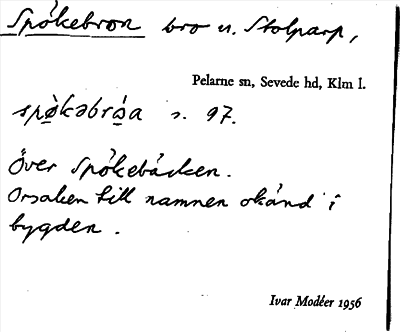 Spökebron bro u. Stolparp,
Pelarne sn, Sevede hd, Klm l.
spo̱kəbro̱a s. 97.
Över Spökebäcken.
Orsaken till namnen okänd i
bygden.
Ivar Modéer 1956